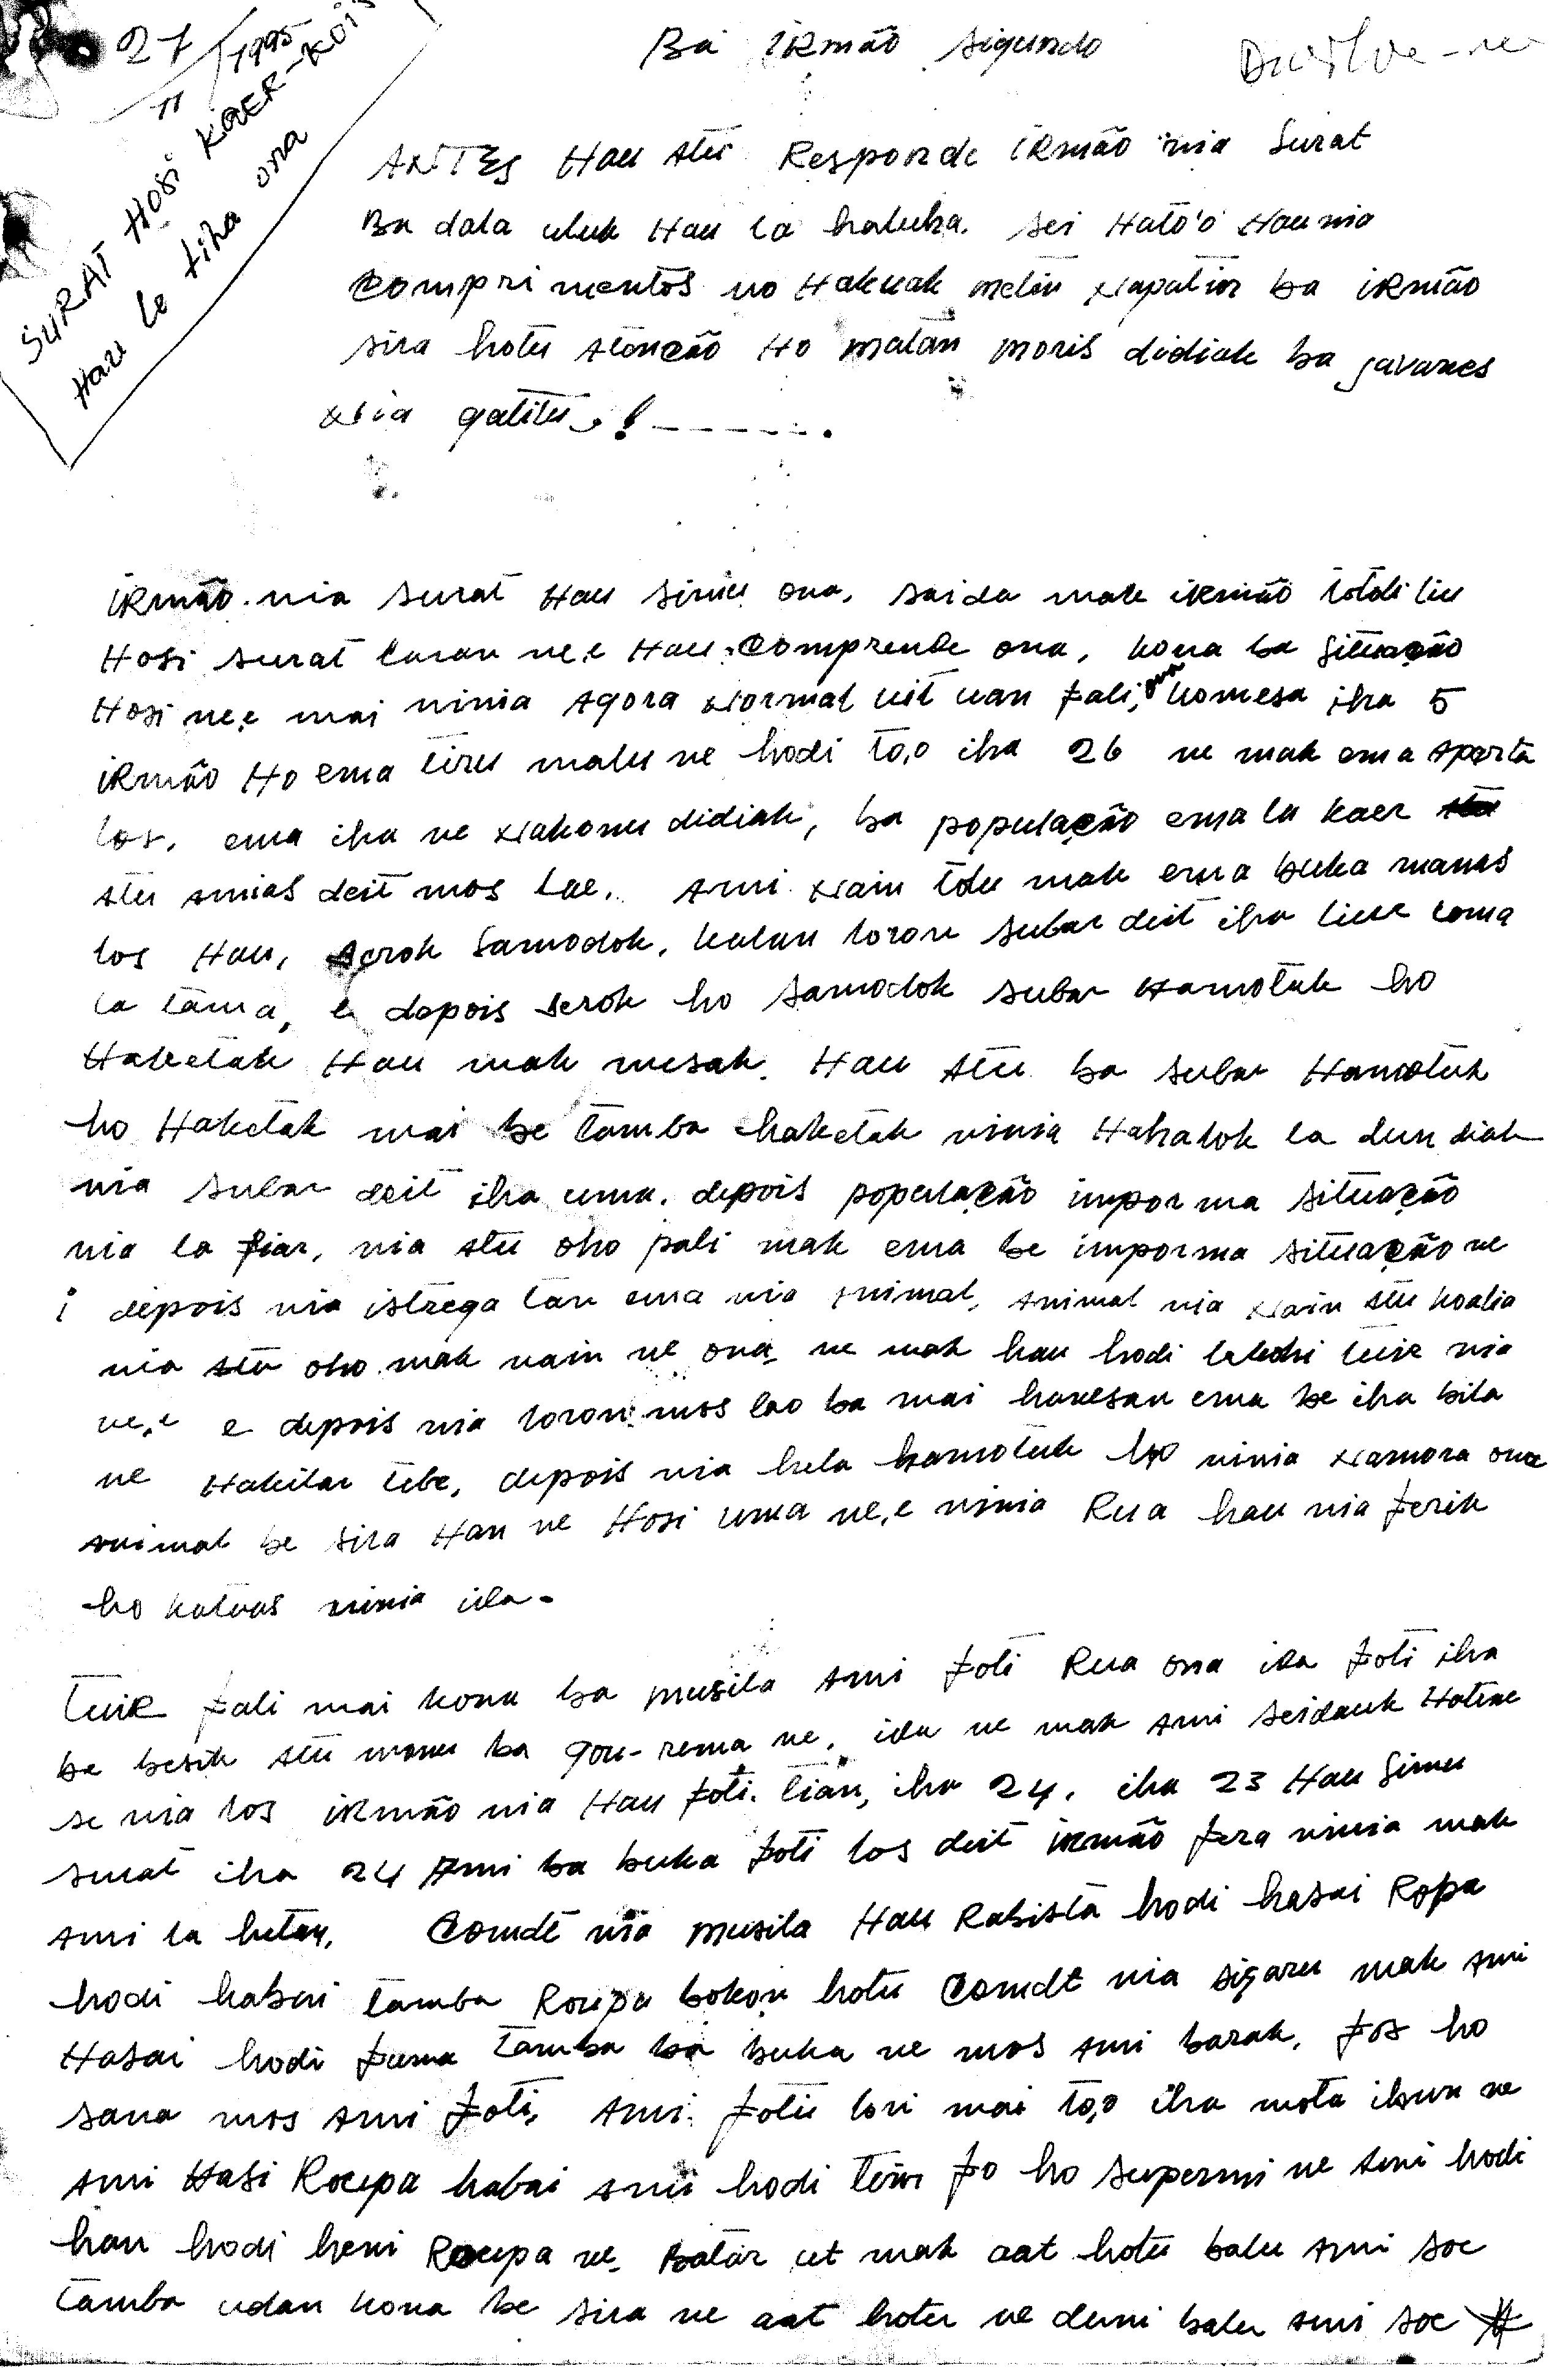 27/11/1995
SURAT HOSI KAER-KOIS
HAU LE tiha ona
Ba IRmão sigundo
ANTES HAU Atu Responde IRmão nia Surat
Ba dala uluk Hau la haluha. sei Hato'o Hau nia
Comprimentos no Hakuak metin Napatior ba iRmão
sira hotu Atencão Ho matan moris didiak ba javanes
Nia gatitu !------.
iRmão nia surat Hau simu ona, saida mak iRmão totdi liu
Hosi surat laran ne,e Hau Comprende ona, kona ba Situação
Hosi ne,e mai ninia Agora Normal uit uan fali, ona komesa iha 5
iRmão Ho ema tiru malu ne hodi to,o iha 26 ne mak ema Aperta
los, ema iha ne Nakonu didiak, ba populacão ema la kaer
Atu Amias deit mos lae. Ami Nain tolu mak ema buka manas
los Hau, Serok Samodok, kalan loron subar deit iha liur uma
la tama, e depois serok ho samodok subar Hamotuk ho
Haketak Hau mak mesak. Hau Atu ba subar Hamotuk
ho Haketak mai be tamba haketak ninia Hahalok la dun diak
nia subar deit iha uma. depois populacão imporma situacão
nia la fiar, nia Atu oho fali mak ema be imporma situacão ne
i depois nia istrega tan ema nia Animal, Animal nia Nain Atu koalia
nia Atu oho mak nain ne ona, ne mak hau hodi tuir nia
ne,e e depois nia loron mos lao ba mai hanesan ema be iha bila
ne Hakilar tebe, depois nia hela hamotuk ho ninia Namora ona
Animal be sira Han ne Hosi uma ne,e ninia Rua hau nia ferik
ho katuas ninia ida.
Tuir fali mai kona ba musila Ami foti Rua ona ida foti iha
be besik Atu monu ba gou-rema ne, ida ne mak Ami seidauk Hatene
se nia los iRmão nia Hau foti. tian, iha 24, iha 23 Hau Simu
surat iha 24 Ami ba buka foti los deit iRmão fera ninia mak
Ami la hetan. Comdt nia musila Hau Rabista hodi hasai Ropa
hodi habai tamba Roupa bokon hotu Comdt nia sigaru mak Ami
Hasai hodi fuma tamba ba buka ne mos Ami barak, fos ho
sana mos Ami foti, Ami foti lori mai to,o iha mota ibun ne
Ami Hasi Roupa habai Ami hodi tein fo ho supermi ne Ami hodi
han hodi hein Roupa ne. batar ut mak aat hotu balu Ami soe
tamba udan kona be sira ne aat hotu ne duni balu Ami soe